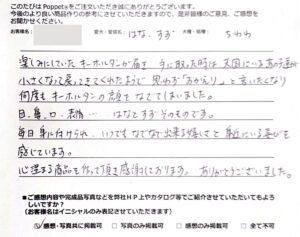 このたびは Poppet®をご注文いただき誠にありがとうございます。
今後のより良い商品作りの参考にさせていただきますので、是非皆様のご意見、ご感想を
お聞かせください。
お客様名: 愛犬・愛猫名: はな、すず 犬種・猫種: ちわわ
楽しみにしていたキーホルダンが届き 手に取った時は 天国にいるあの子達が
小さくなって戻ってきてくれたようで 思わず"おかえり"と言いたくなり
何度もキーホルダンの顔をなでてしまいました。
目、鼻、口、表情 ・・・ はなとすずそのものです。
毎日身に付けられ、いつでもなでなで出来る嬉しさと身近にいる喜びを
感じています。
心温まる商品を作って頂き感謝しております。 ありがとうございました。
■ご感想内容や完成品写真などを弊社HP上やカタログ等でご紹介させていただいてもよろ
しいですか?
(お客様名はイニシャルのみ表記させていただきます)
感想・写真共に掲載可 □写真のみ掲載可 □感想のみ掲載可 □全て不可